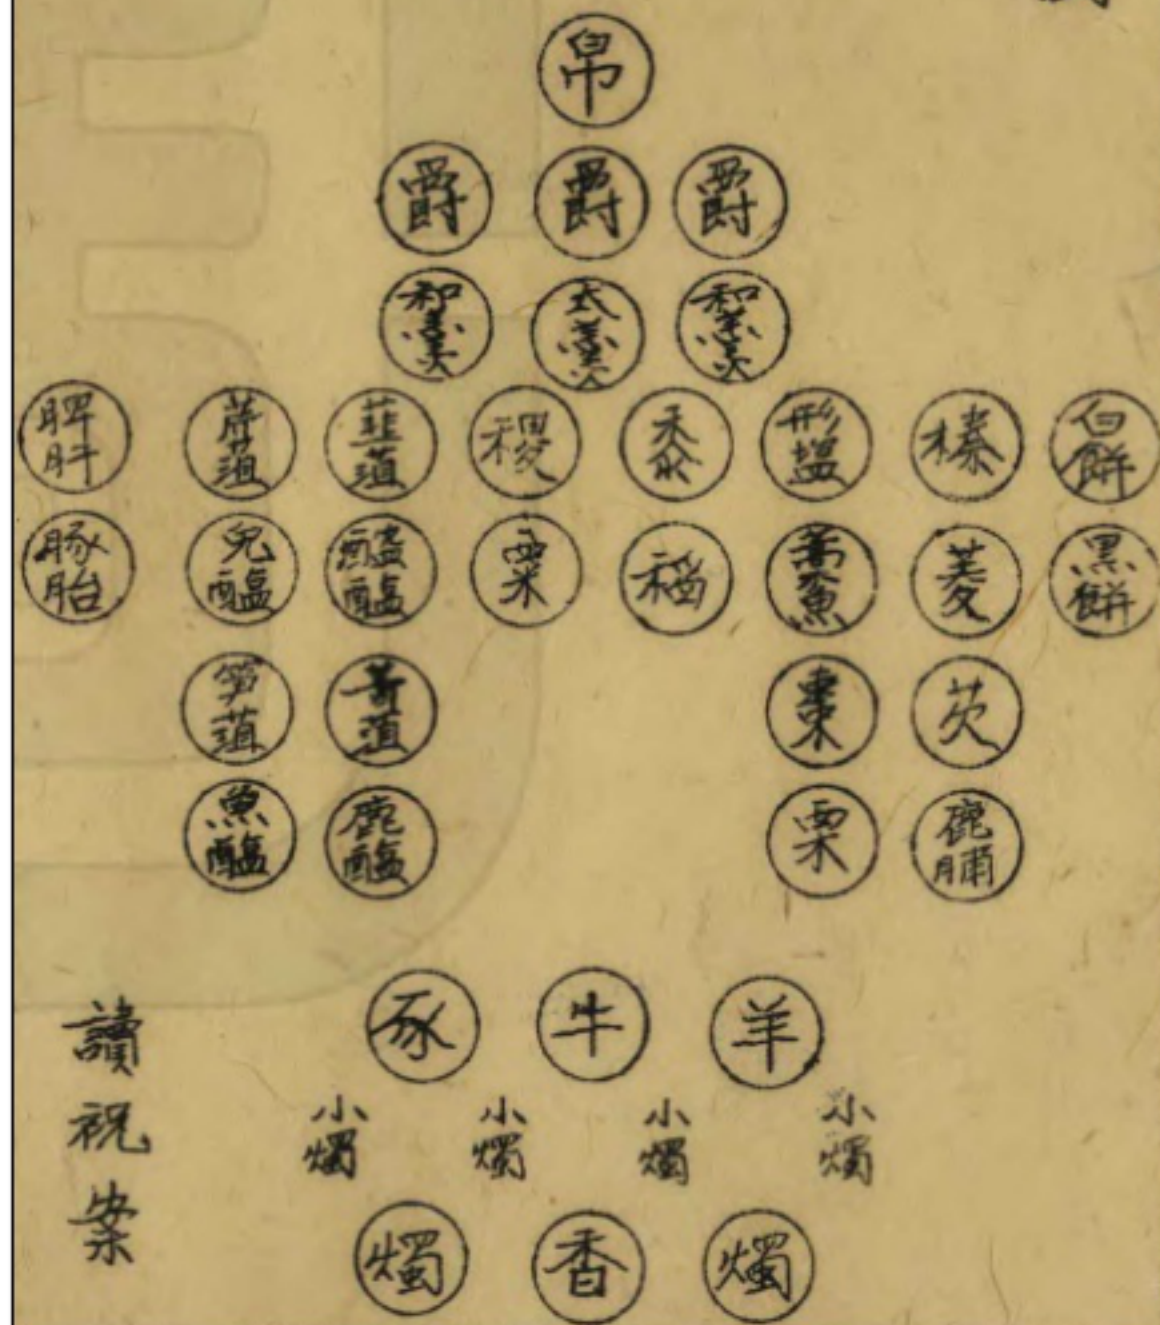 帛
爵 爵 爵
和羹 太羹 和羹
脾肝 芹菹 韭菹 稷 黍 形塩 榛 白餅
豚胎 兔醢 醓醢 粟 稻 藁魚 菱 黑餅
笋菹 菁菹 棗 芡
魚醢 鹿醢 栗 鹿脯
豕 牛 羊
讀祝案
小燭 小燭 小燭 小燭
燭 香 燭